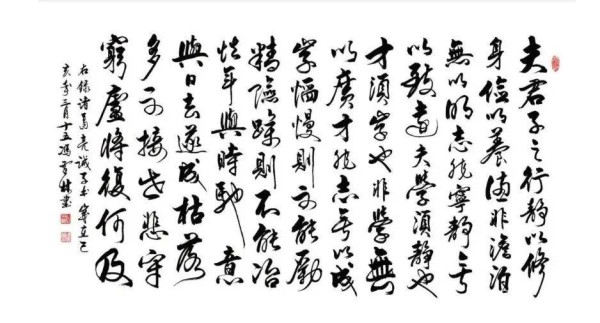 夫君子之行靜以修
身儉以養德非澹泊
無以明志非寧靜無
以致遠夫學須靜也
才須學也非學無
以廣才非志無以成
學慆慢則不能勵
精險躁則不能冶
性年與時馳意
與日去遂成枯落
多不接世悲守
窮廬將復何及
右錄諸葛亮誡子書歲在己
亥年三月十五馮雪林書